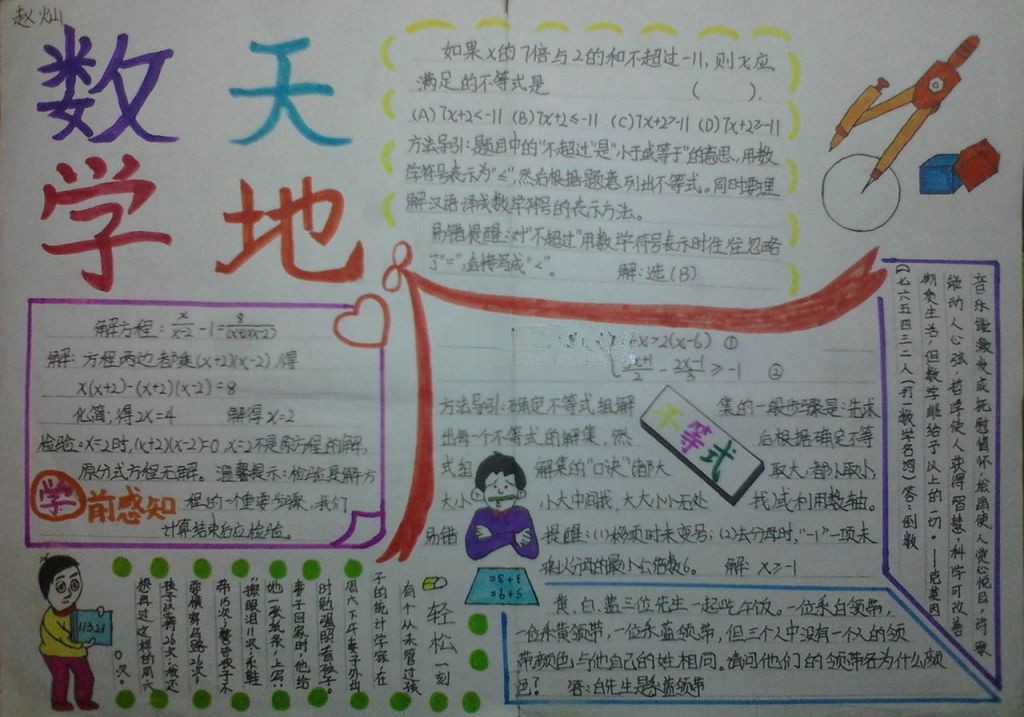 赵灿
数学
天地
如果x的7倍与2的和不超过-11,则x应
满足的不等式是 ( ).
(A) 7x+2<-11 (B) 7x+2≤-11 (C) 7x+2>-11 (D) 7x+2≥-11
方法导引:题目中的"不超过"是"小于或等于"的意思,用数
学符号表示为"≤",然后根据题意列出不等式。同时要理
解汉语译成数学符号的表示方法。
易错提醒:对"不超过"用数学符号表示时往往忽略
了"=",直接写成"<"。 解:选(B)
解方程:
解:方程两边都乘(x+2)(x-2),得
x(x+2)-(x+2)(x-2)=8
化简,得2x=4 解得x=2
检验:x=2时,(x+2)(x-2)=0,x=2不是原方程的解,
原分式方程无解。温馨提示:检验是解方
学前感知
程的一个重要步骤,我们
计算结束后应检验。
+x>2(x-6) ①
x+1/2 - 2x-1/3 ≥-1 ②
不等式
方法导引:确定不等式组解集的一般步骤是:先求
出每一个不等式的解集,然后根据确定不等
式组解集的"口诀"(都大取大,都小取小,
大小小大中间找,大大小小无处找)或利用数轴。
易错提醒:(1)移项时未变号;(2)去分母时,"-1"一项未
乘以分母的最小公倍数6。 解 x≥-1
音乐能激发或抚慰情怀,绘画使人赏心悦目,诗歌
能动人心弦,哲学使人获得智慧,科学可改善
物质生活,但数学能给予以上的一切。——克莱因
七六五四三二一(打一数学名词) 答:倒数
黄、白、蓝三位先生一起吃午饭。一位系白领带,
一位系黄领带,一位系蓝领带,但三个人中没有一个人的领
带颜色与他自己的姓相同。请问他们的领带各为什么颜
色? 答:白先生是系蓝领带
轻松一刻
有个从未管过孩
子的统计学家,在
周六下午妻子外出
时勉强照看孩子。
妻子回家时,他给
她一张纸条,上写:
"擦眼泪11次;系鞋
带15次;
次。
想再过这样的周六
11321